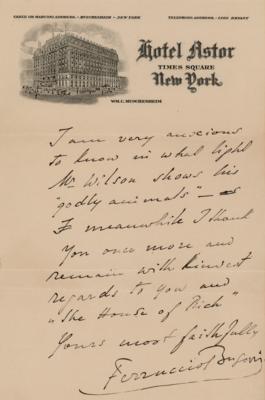 CABLE OR MARCONI ADDRESS - MUSCHENHEIM - NEW YORK
TELEPHONE ADDRESS - 2100 BRYANT
Hotel Astor
TIMES SQUARE
New York
WM. C. MUSCHENHEIM
I am very anxious
to know in what light
Mr Wilson shows his
"godly animals" –
meanwhile I thank
You once more and
remain with kindest
regards to you and
"The House of Rich"
Yours most faithfully
Ferruccio Busoni